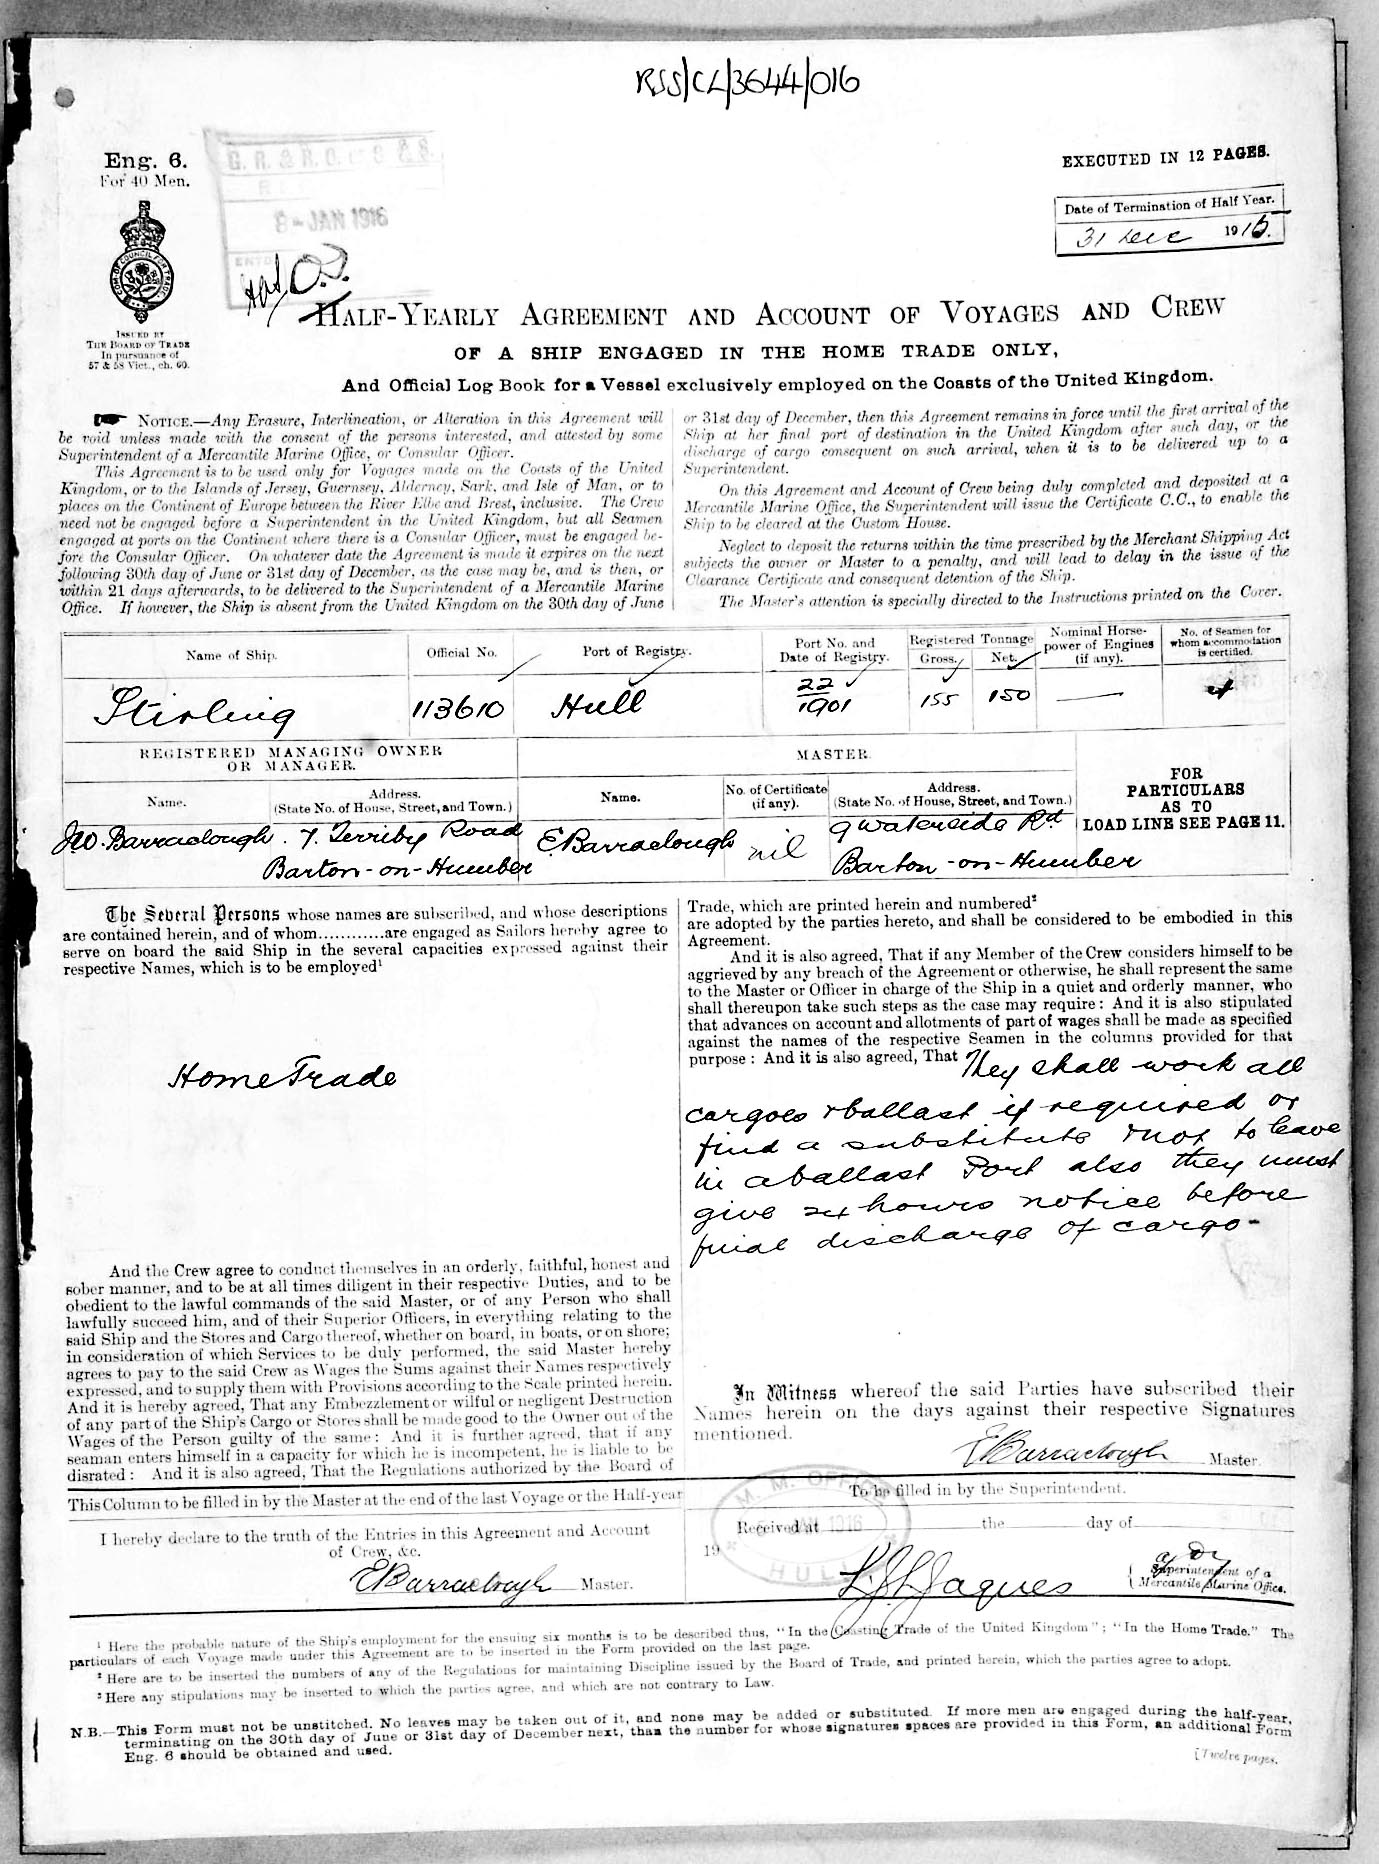 RSS/CL/3644/016
Eng. 6.
For 40 Men.
EXECUTED IN 12 PAGES.
G. R. & R. O. of S & S.
REC
8 - JAN 1916
Date of Termination of Half Year.
31 Dec 1915.
ISSUED BY
THE BOARD OF TRADE
In pursuance of
57 & 58 Vict., ch. 60.
HALF-YEARLY AGREEMENT AND ACCOUNT OF VOYAGES AND CREW
OF A SHIP ENGAGED IN THE HOME TRADE ONLY,
And Official Log Book for a Vessel exclusively employed on the Coasts of the United Kingdom.
NOTICE.—Any Erasure, Interlineation, or Alteration in this Agreement will
be void unless made with the consent of the persons interested, and attested by some
Superintendent of a Mercantile Marine Office, or Consular Officer.
This Agreement is to be used only for Voyages made on the Coasts of the United
Kingdom, or to the Islands of Jersey, Guernsey, Alderney, Sark, and Isle of Man, or to
places on the Continent of Europe between the River Elbe and Brest, inclusive. The Crew
need not be engaged before a Superintendent in the United Kingdom, but all Seamen
engaged at ports on the Continent where there is a Consular Officer, must be engaged be-
fore the Consular Officer. On whatever date the Agreement is made it expires on the next
following 30th day of June or 31st day of December, as the case may be, and is then, or
within 21 days afterwards, to be delivered to the Superintendent of a Mercantile Marine
Office. If however, the Ship is absent from the United Kingdom on the 30th day of June
or 31st day of December, then this Agreement remains in force until the first arrival of the
Ship at her final port of destination in the United Kingdom after such day, or the
discharge of cargo consequent on such arrival, when it is to be delivered up to a
Superintendent.
On this Agreement and Account of Crew being duly completed and deposited at a
Mercantile Marine Office, the Superintendent will issue the Certificate C.C., to enable the
Ship to be cleared at the Custom House.
Neglect to deposit the returns within the time prescribed by the Merchant Shipping Act
subjects the owner or Master to a penalty, and will lead to delay in the issue of the
Clearance Certificate and consequent detention of the Ship.
The Master's attention is specially directed to the Instructions printed on the Cover.
Name of Ship. Official No. Port of Registry. Port No. and Date of Registry. Registered Tonnage Gross. Net. Nominal Horse-power of Engines (if any). No. of Seamen for whom accommodation is certified.
Stirling 113610 Hull 22/1901 155 150 — 4
REGISTERED MANAGING OWNER OR MANAGER. MASTER.
Name. Address. (State No. of House, Street, and Town.) Name. No. of Certificate (if any). Address. (State No. of House, Street, and Town.)
FOR
PARTICULARS
AS TO
LOAD LINE SEE PAGE 11.
JW. Barraclough. 7. Ferriby Road E Barraclough nil 9 Waterside Rd
Barton-on-Humber Barton-on-Humber
The Several Persons whose names are subscribed, and whose descriptions
are contained herein, and of whom............are engaged as Sailors hereby agree to
serve on board the said Ship in the several capacities expressed against their
respective Names, which is to be employed¹
Home Trade
And the Crew agree to conduct themselves in an orderly, faithful, honest and
sober manner, and to be at all times diligent in their respective Duties, and to be
obedient to the lawful commands of the said Master, or of any Person who shall
lawfully succeed him, and of their Superior Officers, in everything relating to the
said Ship and the Stores and Cargo thereof, whether on board, in boats, or on shore;
in consideration of which Services to be duly performed, the said Master hereby
agrees to pay to the said Crew as Wages the Sums against their Names respectively
expressed, and to supply them with Provisions according to the Scale printed herein.
And it is hereby agreed, That any Embezzlement or wilful or negligent Destruction
of any part of the Ship's Cargo or Stores shall be made good to the Owner out of the
Wages of the Person guilty of the same: And it is further agreed, that if any
seaman enters himself in a capacity for which he is incompetent, he is liable to be
disrated: And it is also agreed, That the Regulations authorized by the Board of
Trade, which are printed herein and numbered²
are adopted by the parties hereto, and shall be considered to be embodied in this
Agreement.
And it is also agreed, That if any Member of the Crew considers himself to be
aggrieved by any breach of the Agreement or otherwise, he shall represent the same
to the Master or Officer in charge of the Ship in a quiet and orderly manner, who
shall thereupon take such steps as the case may require: And it is also stipulated
that advances on account and allotments of part of wages shall be made as specified
against the names of the respective Seamen in the columns provided for that
purpose: And it is also agreed, That They shall work all
cargoes & ballast if required or
find a substitute & not to leave
in a ballast Port also they must
give 24 hours notice before
final discharge of cargo-
In Witness whereof the said Parties have subscribed their
Names herein on the days against their respective Signatures
mentioned.
E Barraclough Master.
This Column to be filled in by the Master at the end of the last Voyage or the Half-year
I hereby declare to the truth of the Entries in this Agreement and Account
of Crew, &c.
E Barraclough Master.
To be filled in by the Superintendent.
M. M. OFFICE
JAN 1916
HULL
Received at the day of
19
Jaques
Superintendent of a
Mercantile Marine Office.
¹ Here the probable nature of the Ship's employment for the ensuing six months is to be described thus, "In the Coasting Trade of the United Kingdom"; "In the Home Trade." The
particulars of each Voyage made under this Agreement are to be inserted in the Form provided on the last page.
² Here are to be inserted the numbers of any of the Regulations for maintaining Discipline issued by the Board of Trade, and printed herein, which the parties agree to adopt.
³ Here any stipulations may be inserted to which the parties agree, and which are not contrary to Law.
N.B.—This Form must not be unstitched. No leaves may be taken out of it, and none may be added or substituted. If more men are engaged during the half-year,
terminating on the 30th day of June or 31st day of December next, than the number for whose signatures spaces are provided in this Form, an additional Form
Eng. 6 should be obtained and used.
[Twelve pages.